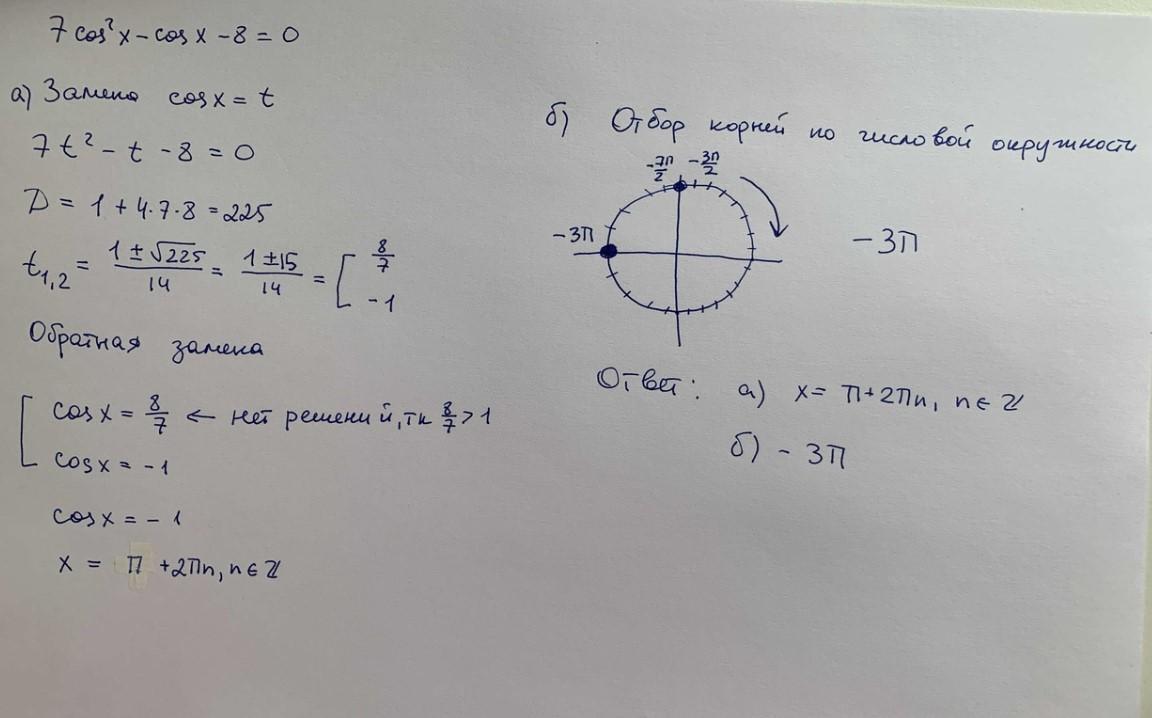 7 cos²x - cos x - 8 = 0
а) Замена cos x = t
7t² - t - 8 = 0
D = 1 + 4·7·8 = 225
t₁,₂ = (1 ± √225)/14 = (1 ± 15)/14 = [ 8/7
-1
Обратная замена
[ cos x = 8/7 ← нет решений, тк 8/7 > 1
cos x = -1
cos x = -1
x = π + 2πn, n ∈ ℤ
б) Отбор корней по числовой окружности
-7π/2 -3π/2
-3π
-3π
Ответ: а) x = π + 2πn, n ∈ ℤ
б) -3π